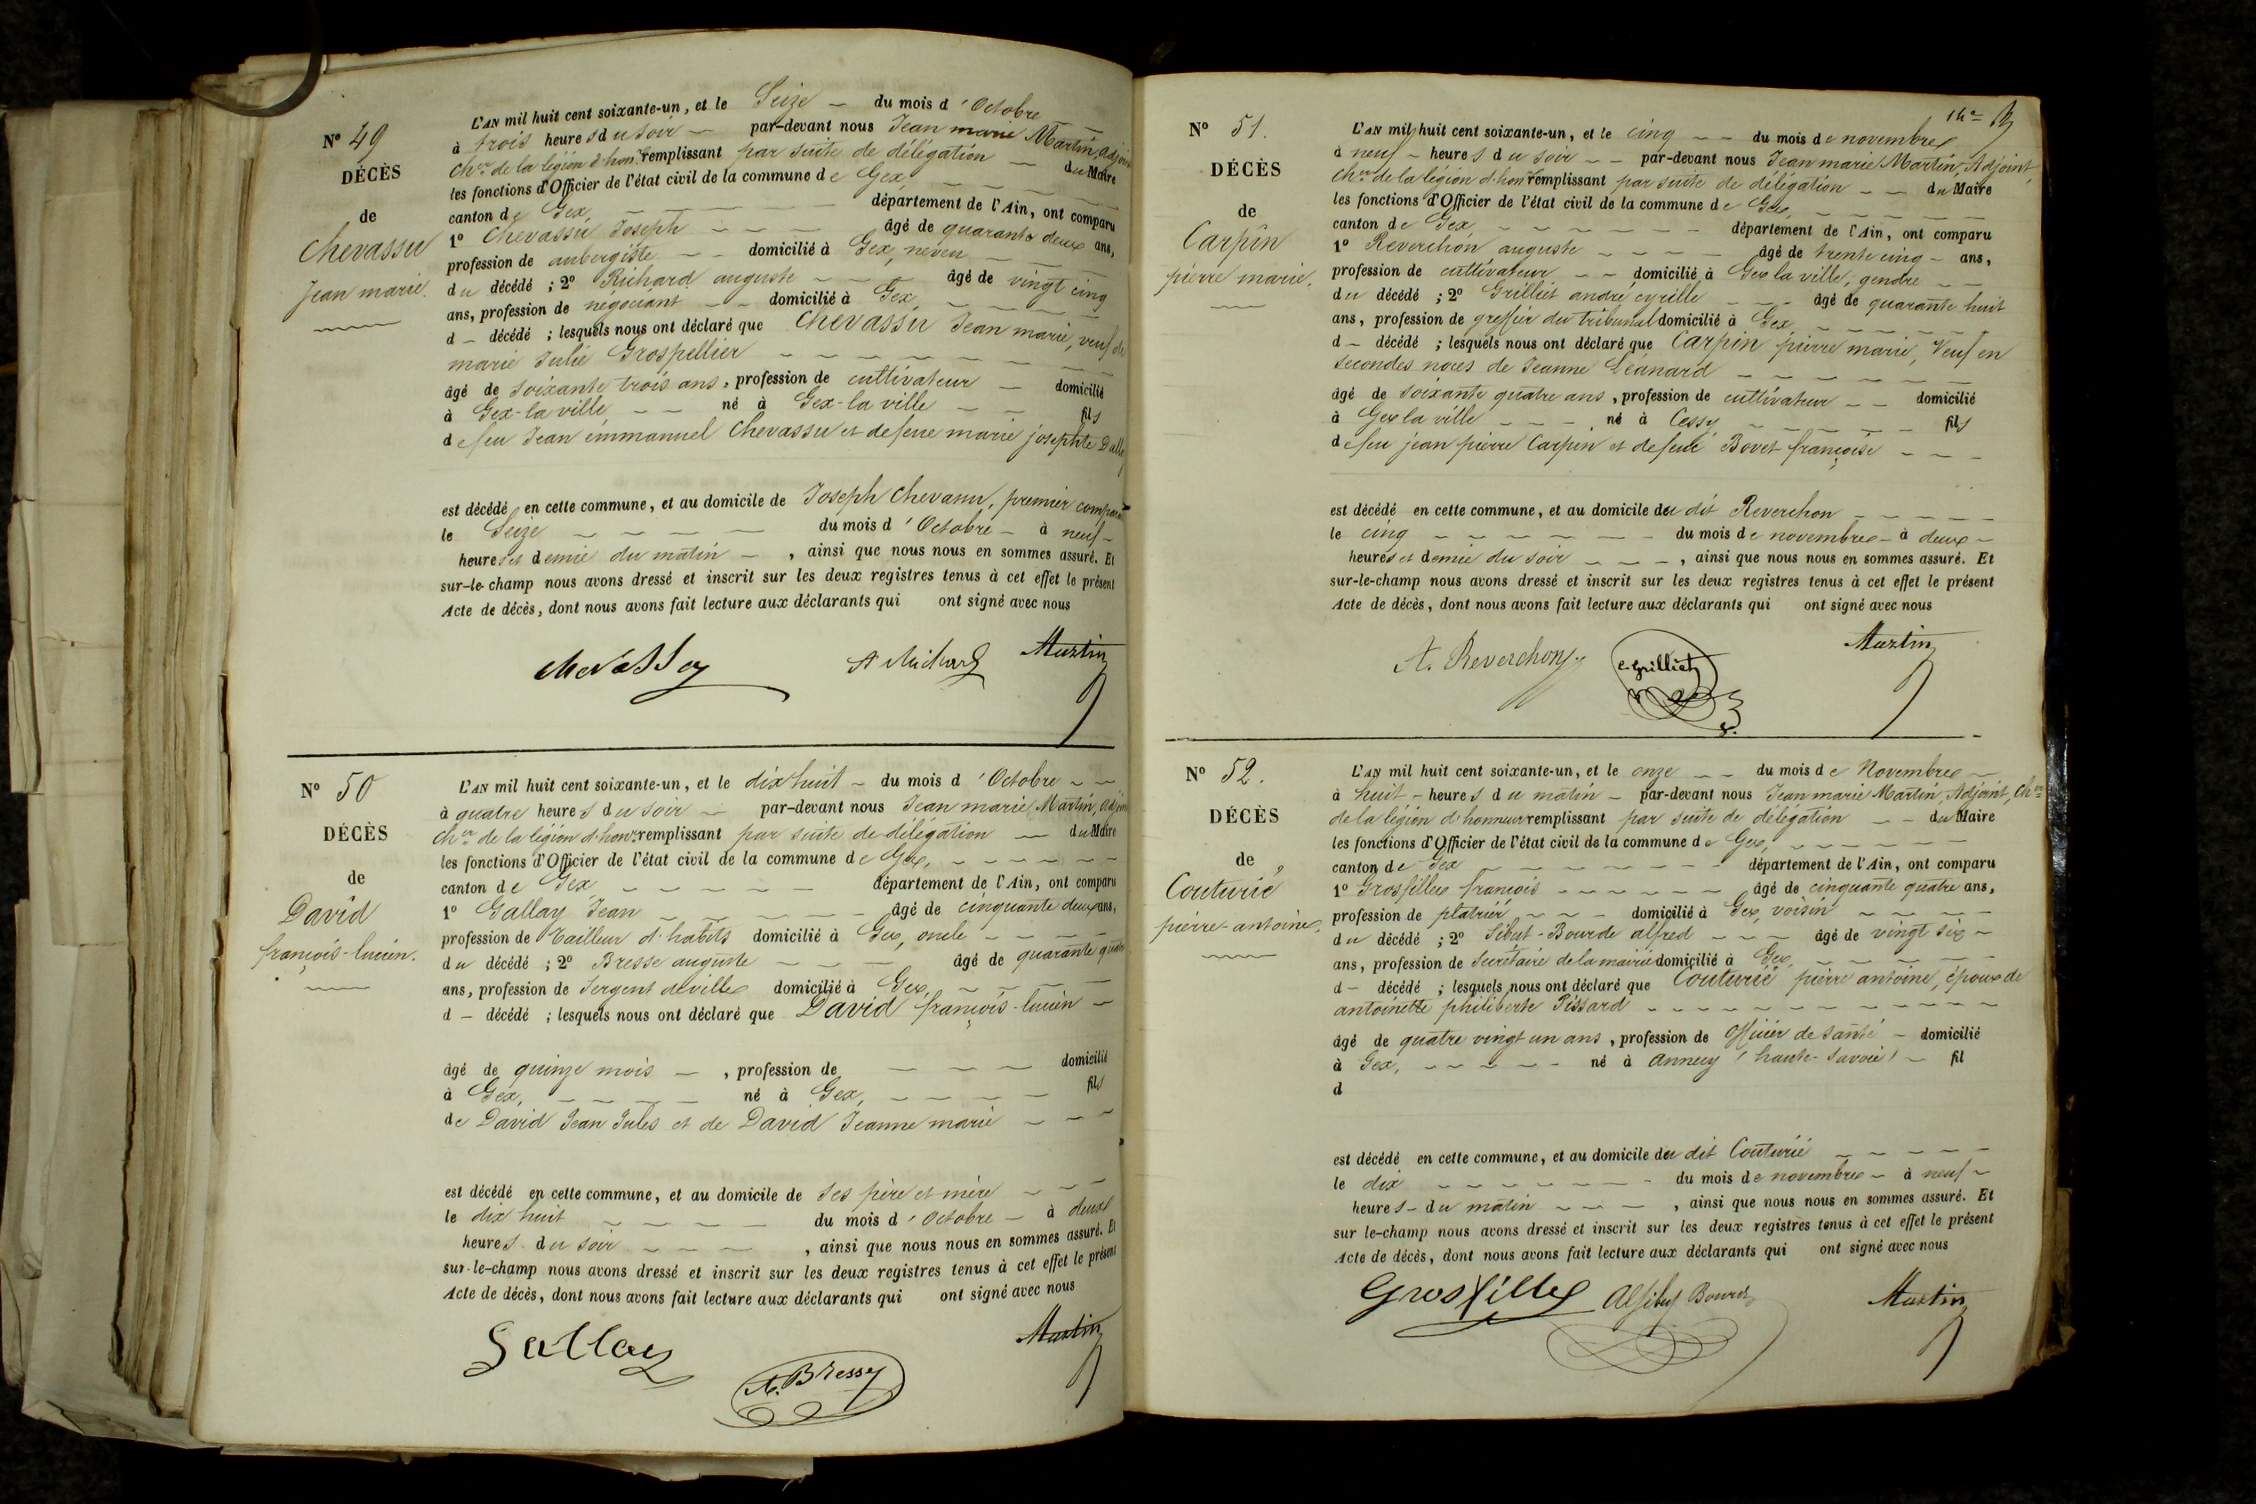 N° 49
DÉCÈS
de
Chevassu
Jean marie.
L'AN mil huit cent soixante-un, et le Seize du mois d'Octobre
à trois heures du soir par-devant nous Jean marie Martin, adjoint
chr de la légion d'honr remplissant par suite de délégation du Maire
les fonctions d'Officier de l'état civil de la commune de Gex,
canton de Gex, département de l'Ain, ont comparu
1° Chevassu Joseph âgé de quarante deux ans,
profession de aubergiste domicilié à Gex, neveu
du décédé ; 2° Richard auguste âgé de vingt cinq
ans, profession de négociant domicilié à Gex,
d décédé ; lesquels nous ont déclaré que Chevassu Jean marie, veuf de
marie Julie Grospellier
âgé de soixante trois ans, profession de cultivateur domicilié
à Gex-la ville né à Gex-la ville fils
de feu Jean émmanuel Chevassu et de feue marie josephte
est décédé en cette commune, et au domicile de Joseph Chevassu, premier
le Seize du mois d'Octobre à neuf
heures et demie du matin, ainsi que nous nous en sommes assuré. Et
sur-le-champ nous avons dressé et inscrit sur les deux registres tenus à cet effet le présent
Acte de décès, dont nous avons fait lecture aux déclarants qui ont signé avec nous
Martin
N° 50
DÉCÈS
de
David
françois-lucien.
L'AN mil huit cent soixante-un, et le dix huit du mois d'Octobre
à quatre heures du soir par-devant nous Jean marie Martin, adjoint
chr de la légion d'honr remplissant par suite de délégation du Maire
les fonctions d'Officier de l'état civil de la commune de Gex,
canton de Gex département de l'Ain, ont comparu
1° Gallay Jean âgé de cinquante deux ans,
profession de tailleur d'habits domicilié à Gex, oncle
du décédé ; 2° Bresse auguste âgé de quarante
ans, profession de Sergent de ville domicilié à Gex,
d décédé ; lesquels nous ont déclaré que David françois-lucien
âgé de quinze mois, profession de domicilié
à Gex, né à Gex, fils
de David Jean Jules et de David Jeanne marie
est décédé en cette commune, et au domicile de ses père et mère
le dix huit du mois d'Octobre à deux
heures du soir, ainsi que nous nous en sommes assuré. Et
sur-le-champ nous avons dressé et inscrit sur les deux registres tenus à cet effet le présent
Acte de décès, dont nous avons fait lecture aux déclarants qui ont signé avec nous
Martin
Gallay
A. Bressy
N° 51.
DÉCÈS
de
Carpin
pierre marie.
L'AN mil huit cent soixante-un, et le cinq du mois de novembre
à neuf heures du soir par-devant nous Jean marie Martin, Adjoint,
chr de la légion d'honr remplissant par suite de délégation du Maire
les fonctions d'Officier de l'état civil de la commune de Gex,
canton de Gex, département de l'Ain, ont comparu
1° Reverchon auguste âgé de trente cinq ans,
profession de cultivateur domicilié à Gex la ville, gendre
du décédé ; 2° Grilliet andré cyrille âgé de quarante huit
ans, profession de greffier du tribunal domicilié à Gex
d décédé ; lesquels nous ont déclaré que Carpin pierre marie, Veuf en
secondes noces de Jeanne Léanard
âgé de soixante quatre ans, profession de cultivateur domicilié
à Gex la ville né à Cessy fils
de feu jean pierre Carpin et de feue Bovet françoise
est décédé en cette commune, et au domicile du dit Reverchon
le cinq du mois de novembre à deux
heures et demie du soir, ainsi que nous nous en sommes assuré. Et
sur-le-champ nous avons dressé et inscrit sur les deux registres tenus à cet effet le présent
Acte de décès, dont nous avons fait lecture aux déclarants qui ont signé avec nous
A. Reverchon c. grilliet Martin
N° 52.
DÉCÈS
de
Couturié
pierre-antoine.
L'AN mil huit cent soixante-un, et le onze du mois de Novembre
à huit heures du matin par-devant nous Jean marie Martin, Adjoint, Chr
de la légion d'honneur remplissant par suite de délégation du Maire
les fonctions d'Officier de l'état civil de la commune de Gex,
canton de Gex département de l'Ain, ont comparu
1° Grosfillex françois âgé de cinquante quatre ans,
profession de platrier domicilié à Gex, voisin
du décédé ; 2° Sibut-Bourde alfred âgé de vingt six
ans, profession de Secrétaire de la mairie domicilié à Gex,
d décédé ; lesquels nous ont déclaré que Couturié pierre antoine, époux de
antoinette philiberte Pissard
âgé de quatre vingt un ans, profession de Officier de santé domicilié
à Gex, né à annecy (haute-Savoie) fil
d
est décédé en cette commune, et au domicile du dit Couturié
le dix du mois de novembre à neuf
heures du matin, ainsi que nous nous en sommes assuré. Et
sur le-champ nous avons dressé et inscrit sur les deux registres tenus à cet effet le présent
Acte de décès, dont nous avons fait lecture aux déclarants qui ont signé avec nous
Grosfillex Martin